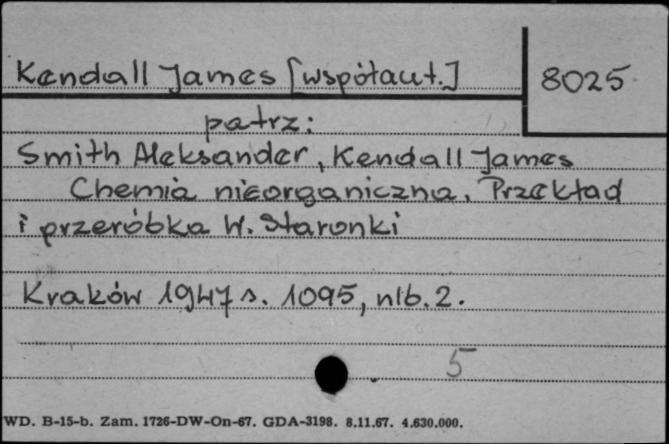 Kendall James [współaut.]
8025
patrz:
Smith Aleksander, Kendall James
Chemia nieorganiczna. Przekład
i przeróbka W. Staronki
Kraków 1947 s. 1095, nlb. 2.
5
WD. B-15-b. Zam. 1726-DW-On-67. GDA-3198. 8.11.67. 4.630.000.